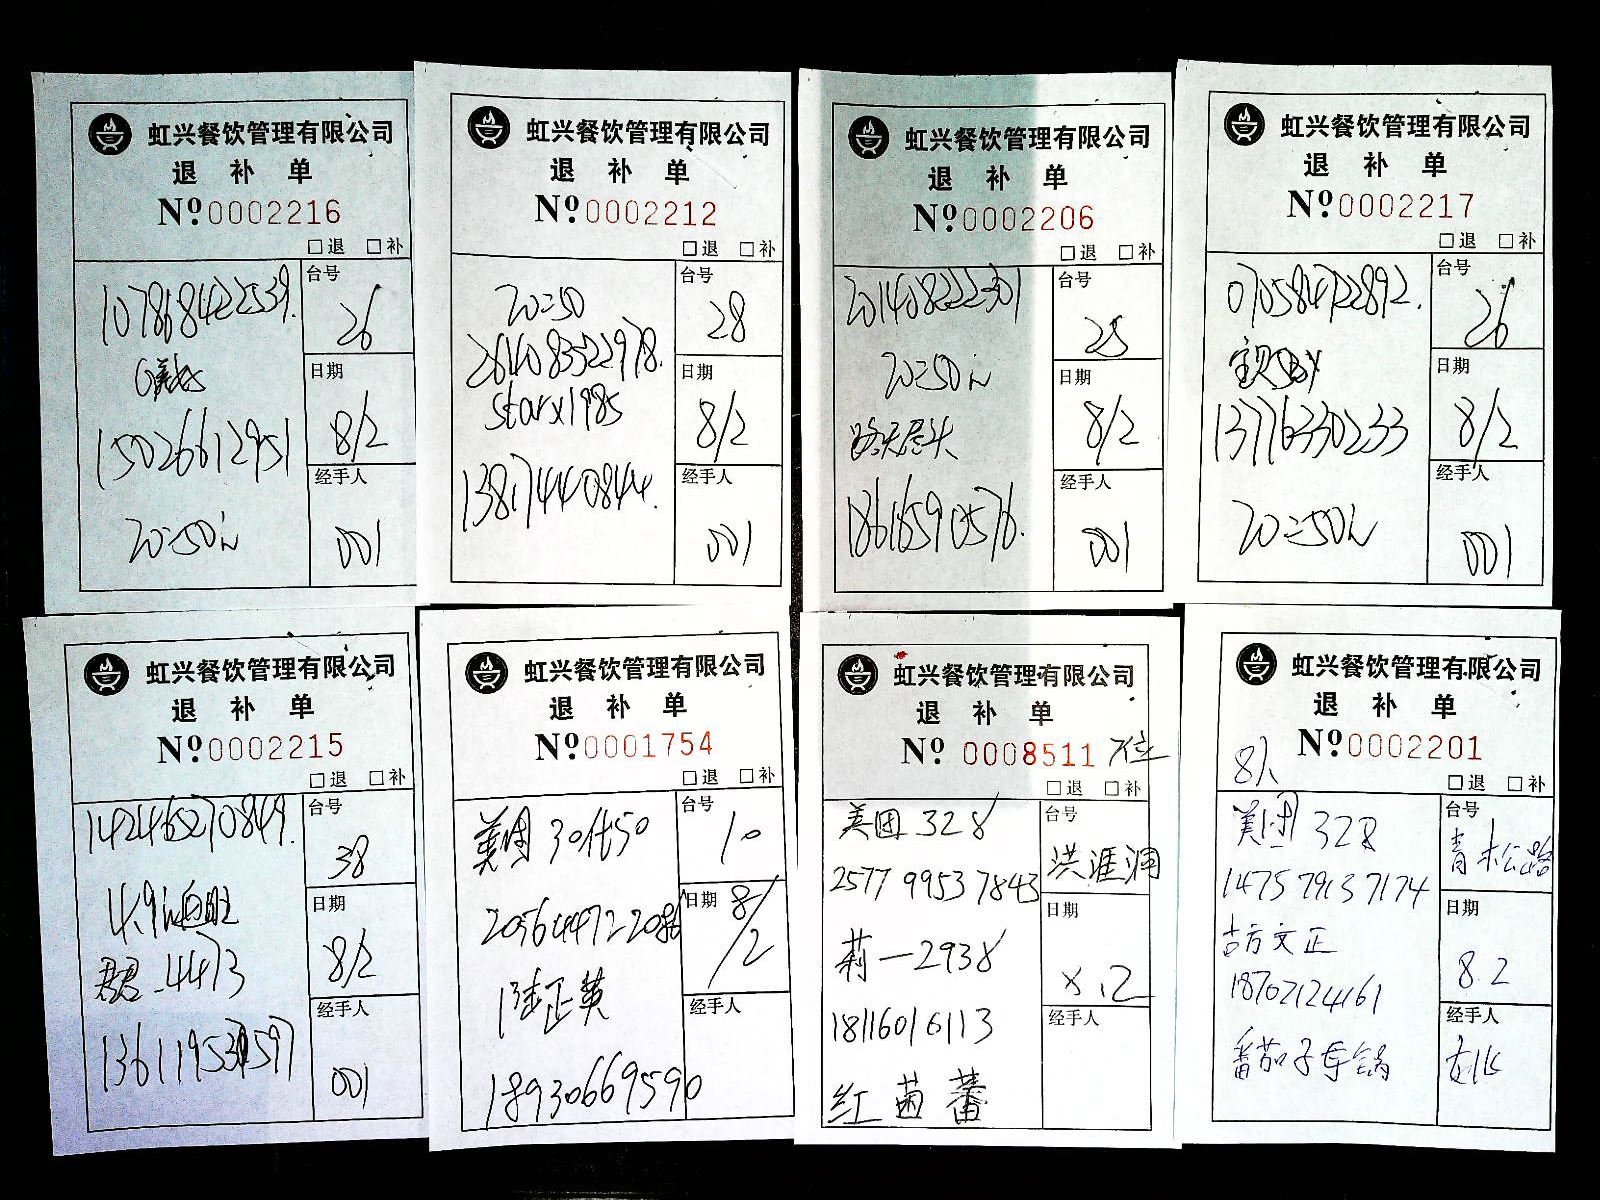 虹兴餐饮管理有限公司
退 补 单
Nº 0002216
□退 □补
107868422539.
台号
26
日期
8/2
15026612951
经手人
20=50
001
虹兴餐饮管理有限公司
退 补 单
Nº 0002212
□退 □补
20=50
台号
28
starx1985
日期
8/2
138174440844.
经手人
001
虹兴餐饮管理有限公司
退 补 单
Nº 0002206
□退 □补
201408222301
台号
25
20=50
日期
8/2
18616590576.
经手人
001
虹兴餐饮管理有限公司
退 补 单
Nº 0002217
□退 □补
070584722892.
台号
26
日期
8/2
13776330233
经手人
20=50
001
虹兴餐饮管理有限公司
退 补 单
Nº 0002215
□退 □补
142465270849.
台号
38
日期
8/2
君君-4473
经手人
001
虹兴餐饮管理有限公司
退 补 单
Nº 0001754
□退 □补
美团 30代50
台号
10
日期
8/2
陆正英
经手人
18930669590
虹兴餐饮管理有限公司
退 补 单
Nº 0008511 7位
□退 □补
美团 328
台号
洪涯澜
2577 9953 7843
日期
莉一2938
18116016113
经手人
红 菌 蕃
虹兴餐饮管理有限公司
退 补 单
8人
Nº 0002201
□退 □补
美团 328
台号
青松路
1475 7913 7174
日期
8.2
古方文正
18702124161
经手人
番茄